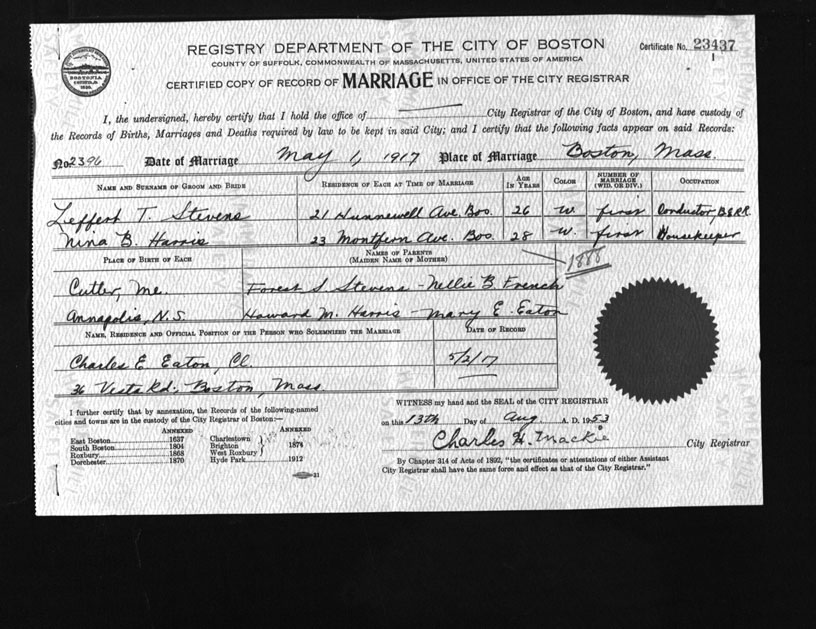 REGISTRY DEPARTMENT OF THE CITY OF BOSTON
Certificate No. 23437
COUNTY OF SUFFOLK, COMMONWEALTH OF MASSACHUSETTS, UNITED STATES OF AMERICA
CERTIFIED COPY OF RECORD OF MARRIAGE IN OFFICE OF THE CITY REGISTRAR
BOSTONIA
I, the undersigned, hereby certify that I hold the office of City Registrar of the City of Boston, and have custody of
the Records of Births, Marriages and Deaths required by law to be kept in said City; and I certify that the following facts appear on said Records:
No 2396 Date of Marriage May 1, 1917 Place of Marriage Boston, Mass.
NAME AND SURNAME OF GROOM AND BRIDE RESIDENCE OF EACH AT TIME OF MARRIAGE AGE IN YEARS COLOR NUMBER OF MARRIAGE (WID. OR DIV.) OCCUPATION
Leffert T. Stevens 21 Hunnewell Ave. Bos. 26 W. first Conductor, B&RR.
Nina B. Harris 23 Montfern Ave. Bos. 28 W. first Housekeeper
PLACE OF BIRTH OF EACH NAMES OF PARENTS (MAIDEN NAME OF MOTHER)
1888
Cutler, Me. Forest S. Stevens - Nellie B. French
Annapolis, N.S. Howard M. Harris - Mary E. Eaton
NAME, RESIDENCE AND OFFICIAL POSITION OF THE PERSON WHO SOLEMNIZED THE MARRIAGE DATE OF RECORD
Charles E. Eaton, Cl. 5/2/17
36 Vesta Rd., Boston, Mass.
WITNESS my hand and the SEAL of the CITY REGISTRAR
I further certify that by annexation, the Records of the following-named
cities and towns are in the custody of the City Registrar of Boston:—
on this 13th Day of Aug A. D. 1953
ANNEXED ANNEXED
East Boston 1637 Charlestown
South Boston 1804 Brighton 1874
Roxbury 1868 West Roxbury
Dorchester 1870 Hyde Park 1912
Charles H. Mackie City Registrar
By Chapter 314 of Acts of 1892, "the certificates or attestations of either Assistant
City Registrar shall have the same force and effect as that of the City Registrar."
31